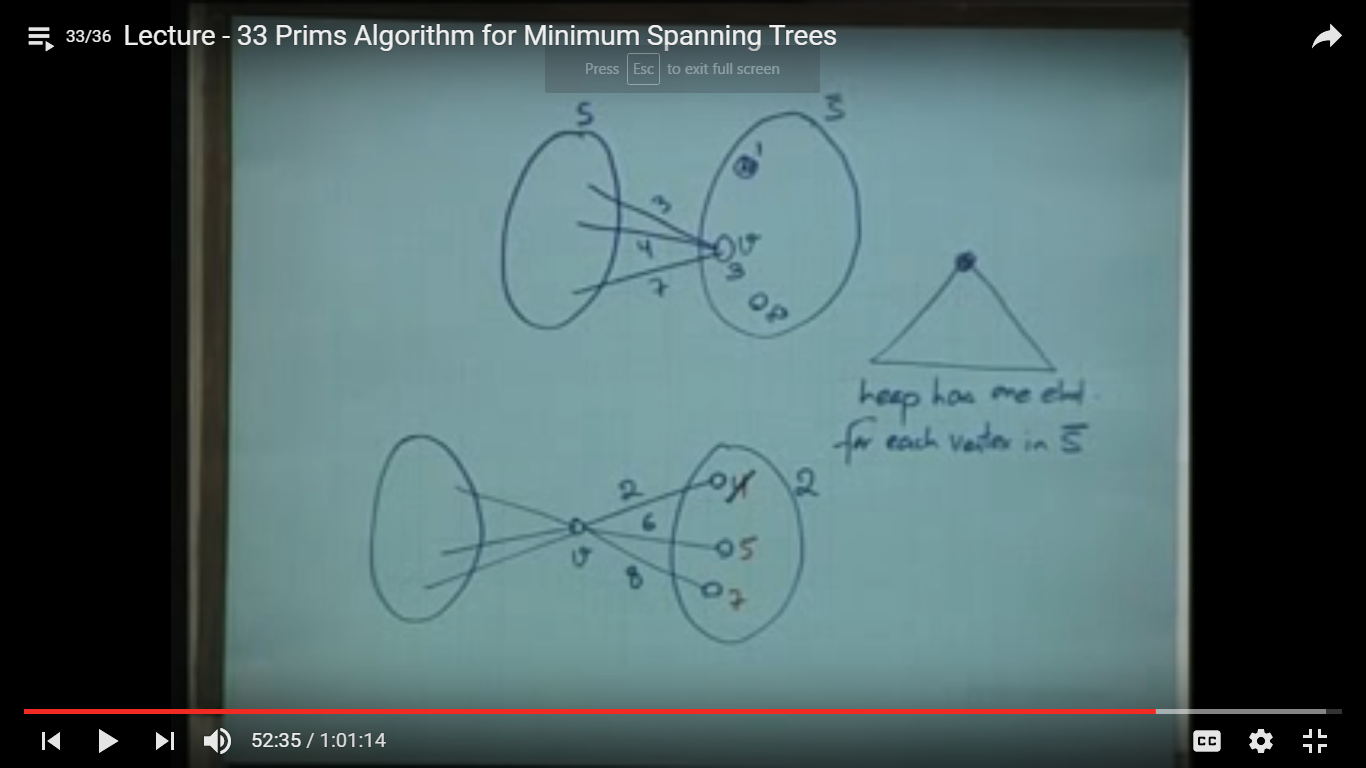 33/36 Lecture - 33 Prims Algorithm for Minimum Spanning Trees
Press Esc to exit full screen
S
S̅
1
3
v
4
3
7
heap has one elmt
for each vertex in S̅
2
4
2
6
5
v
8
7
52:35 / 1:01:14
CC